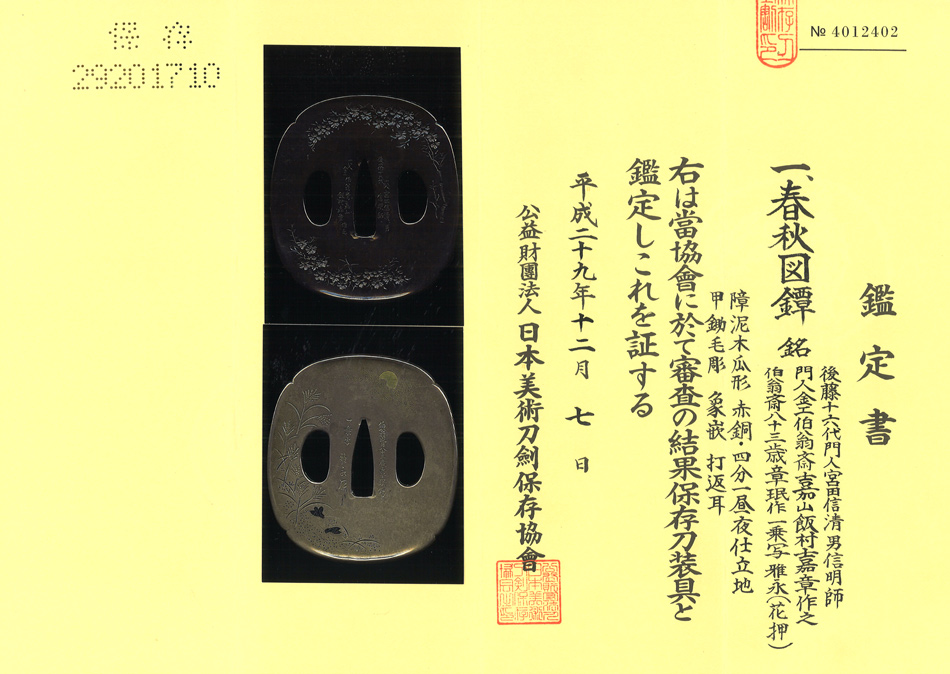 保存
29201710
№ 4012402
鑑定書
一、春秋図鐔 銘
後藤十六代門人宮田信清男信明師
門人金工伯翁斎吉嘉山飯村吉嘉章作之
伯翁斎八十三歳章珉作 一乗写 雅永(花押)
障泥木瓜形 赤銅・四分一昼夜仕立地
甲鋤毛彫 象嵌 打返耳
右は當協會に於て審査の結果保存刀装具と
鑑定しこれを証する
平成二十九年十二月 七 日
公益財團法人 日本美術刀劍保存協會